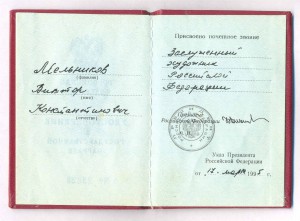 Мельников
(фамилия)
Виктор
(имя)
Константинович
(отчество)
Присвоено почетное звание
Заслуженный
художник
Российской
Федерации
Президент
Российской Федерации
Указ Президента
Российской Федерации
от 17 марта 1995 г.